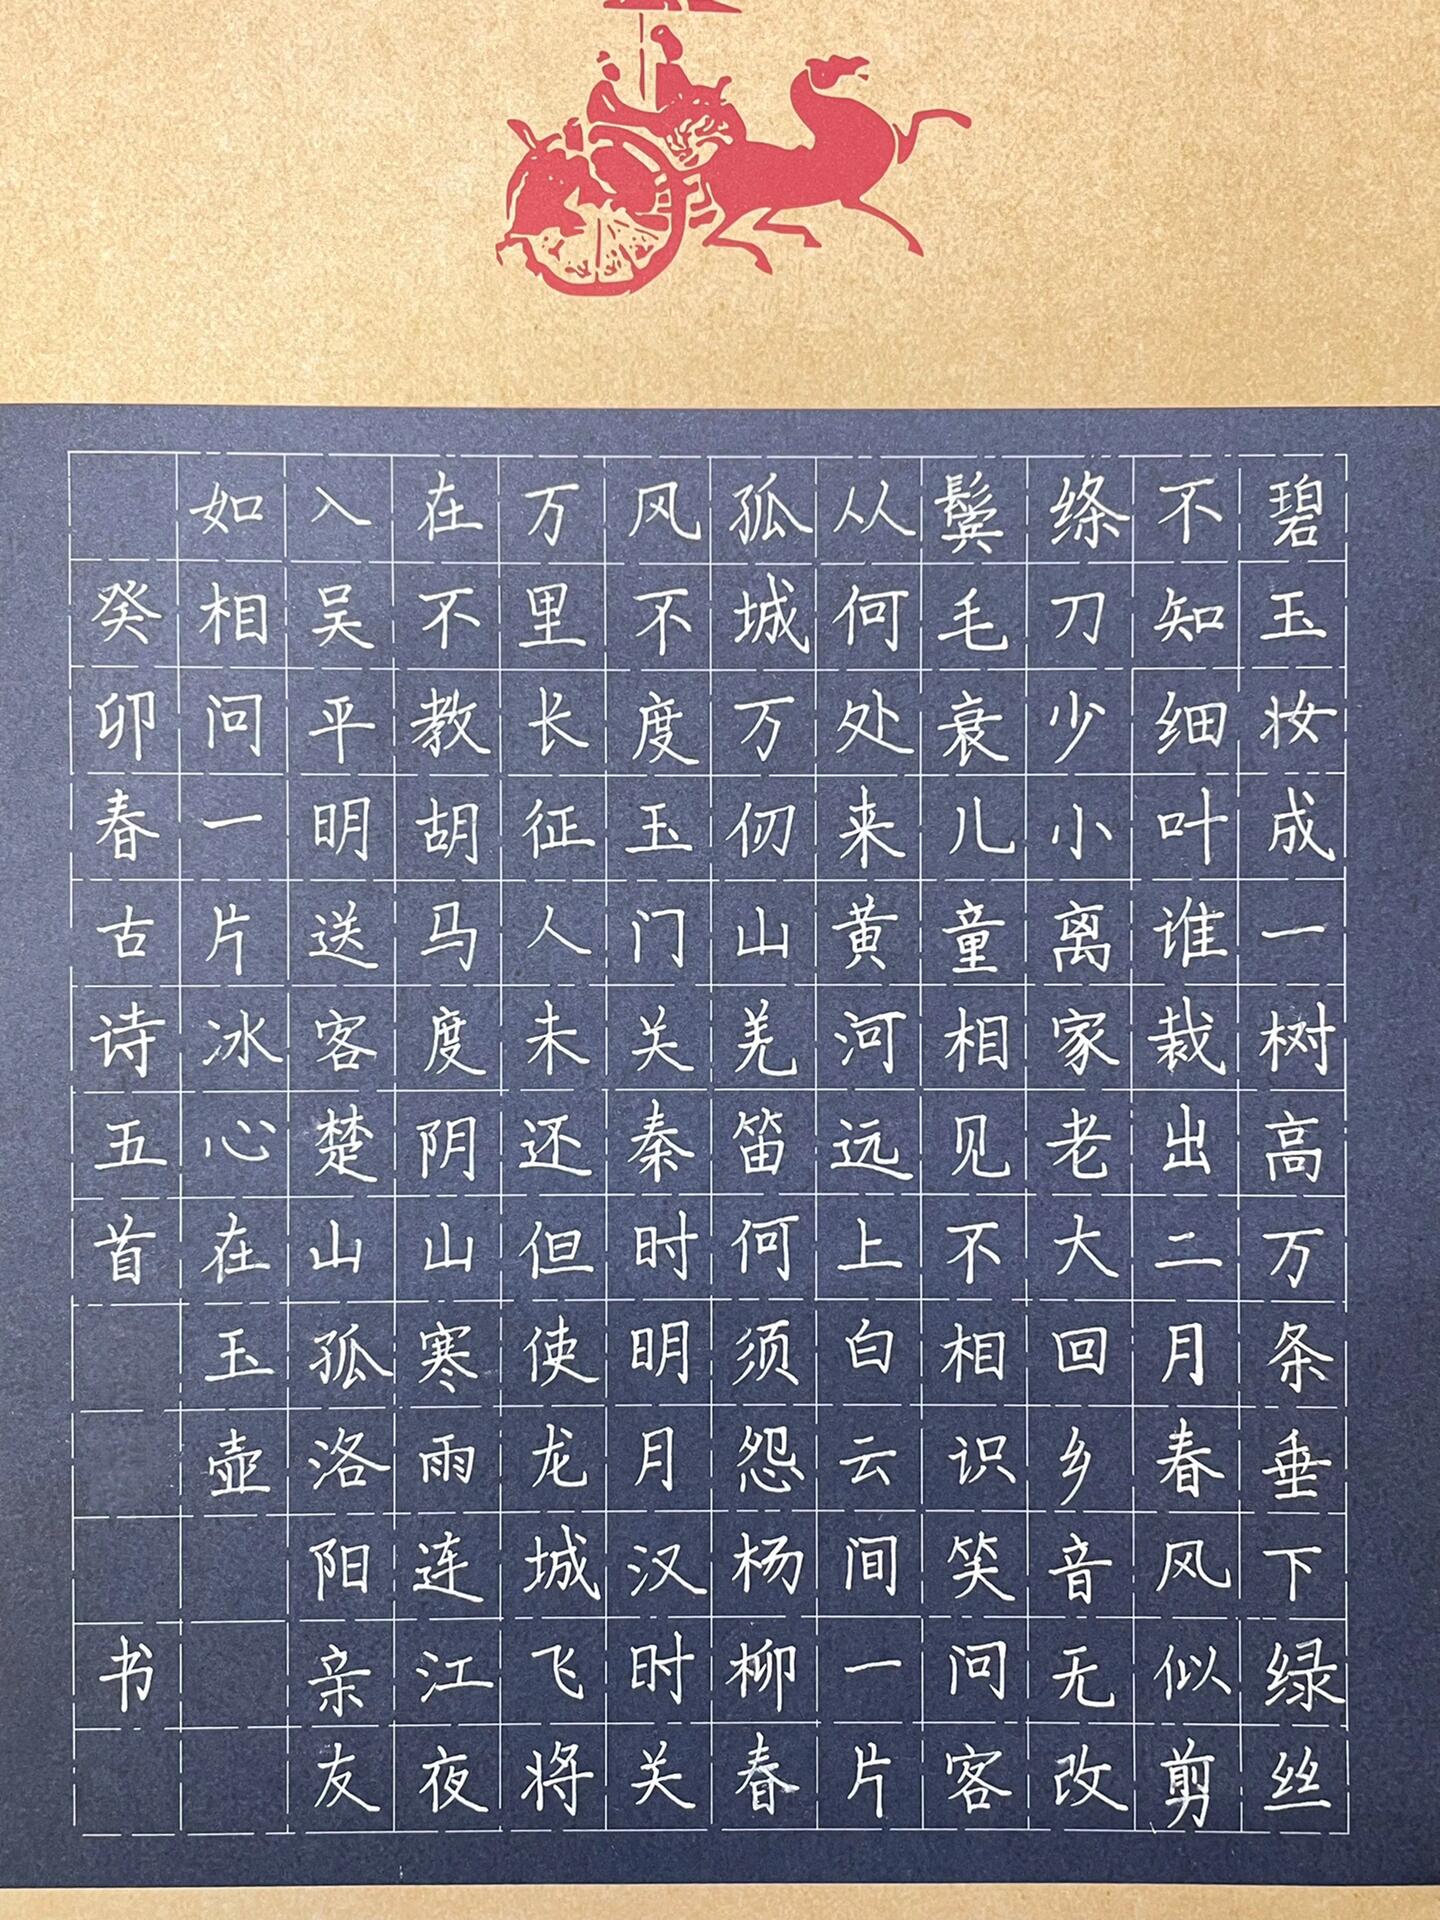 碧玉妆成一树高万条垂下绿丝
不知细叶谁裁出二月春风似剪
绦刀少小离家老大回乡音无改
鬓毛衰儿童相见不相识笑问客
从何处来黄河远上白云间一片
孤城万仞山羌笛何须怨杨柳春
风不度玉门关秦时明月汉时关
万里长征人未还但使龙城飞将
在不教胡马度阴山寒雨连江夜
入吴平明送客楚山孤洛阳亲友
如相问一片冰心在玉壶
癸卯春古诗五首 书